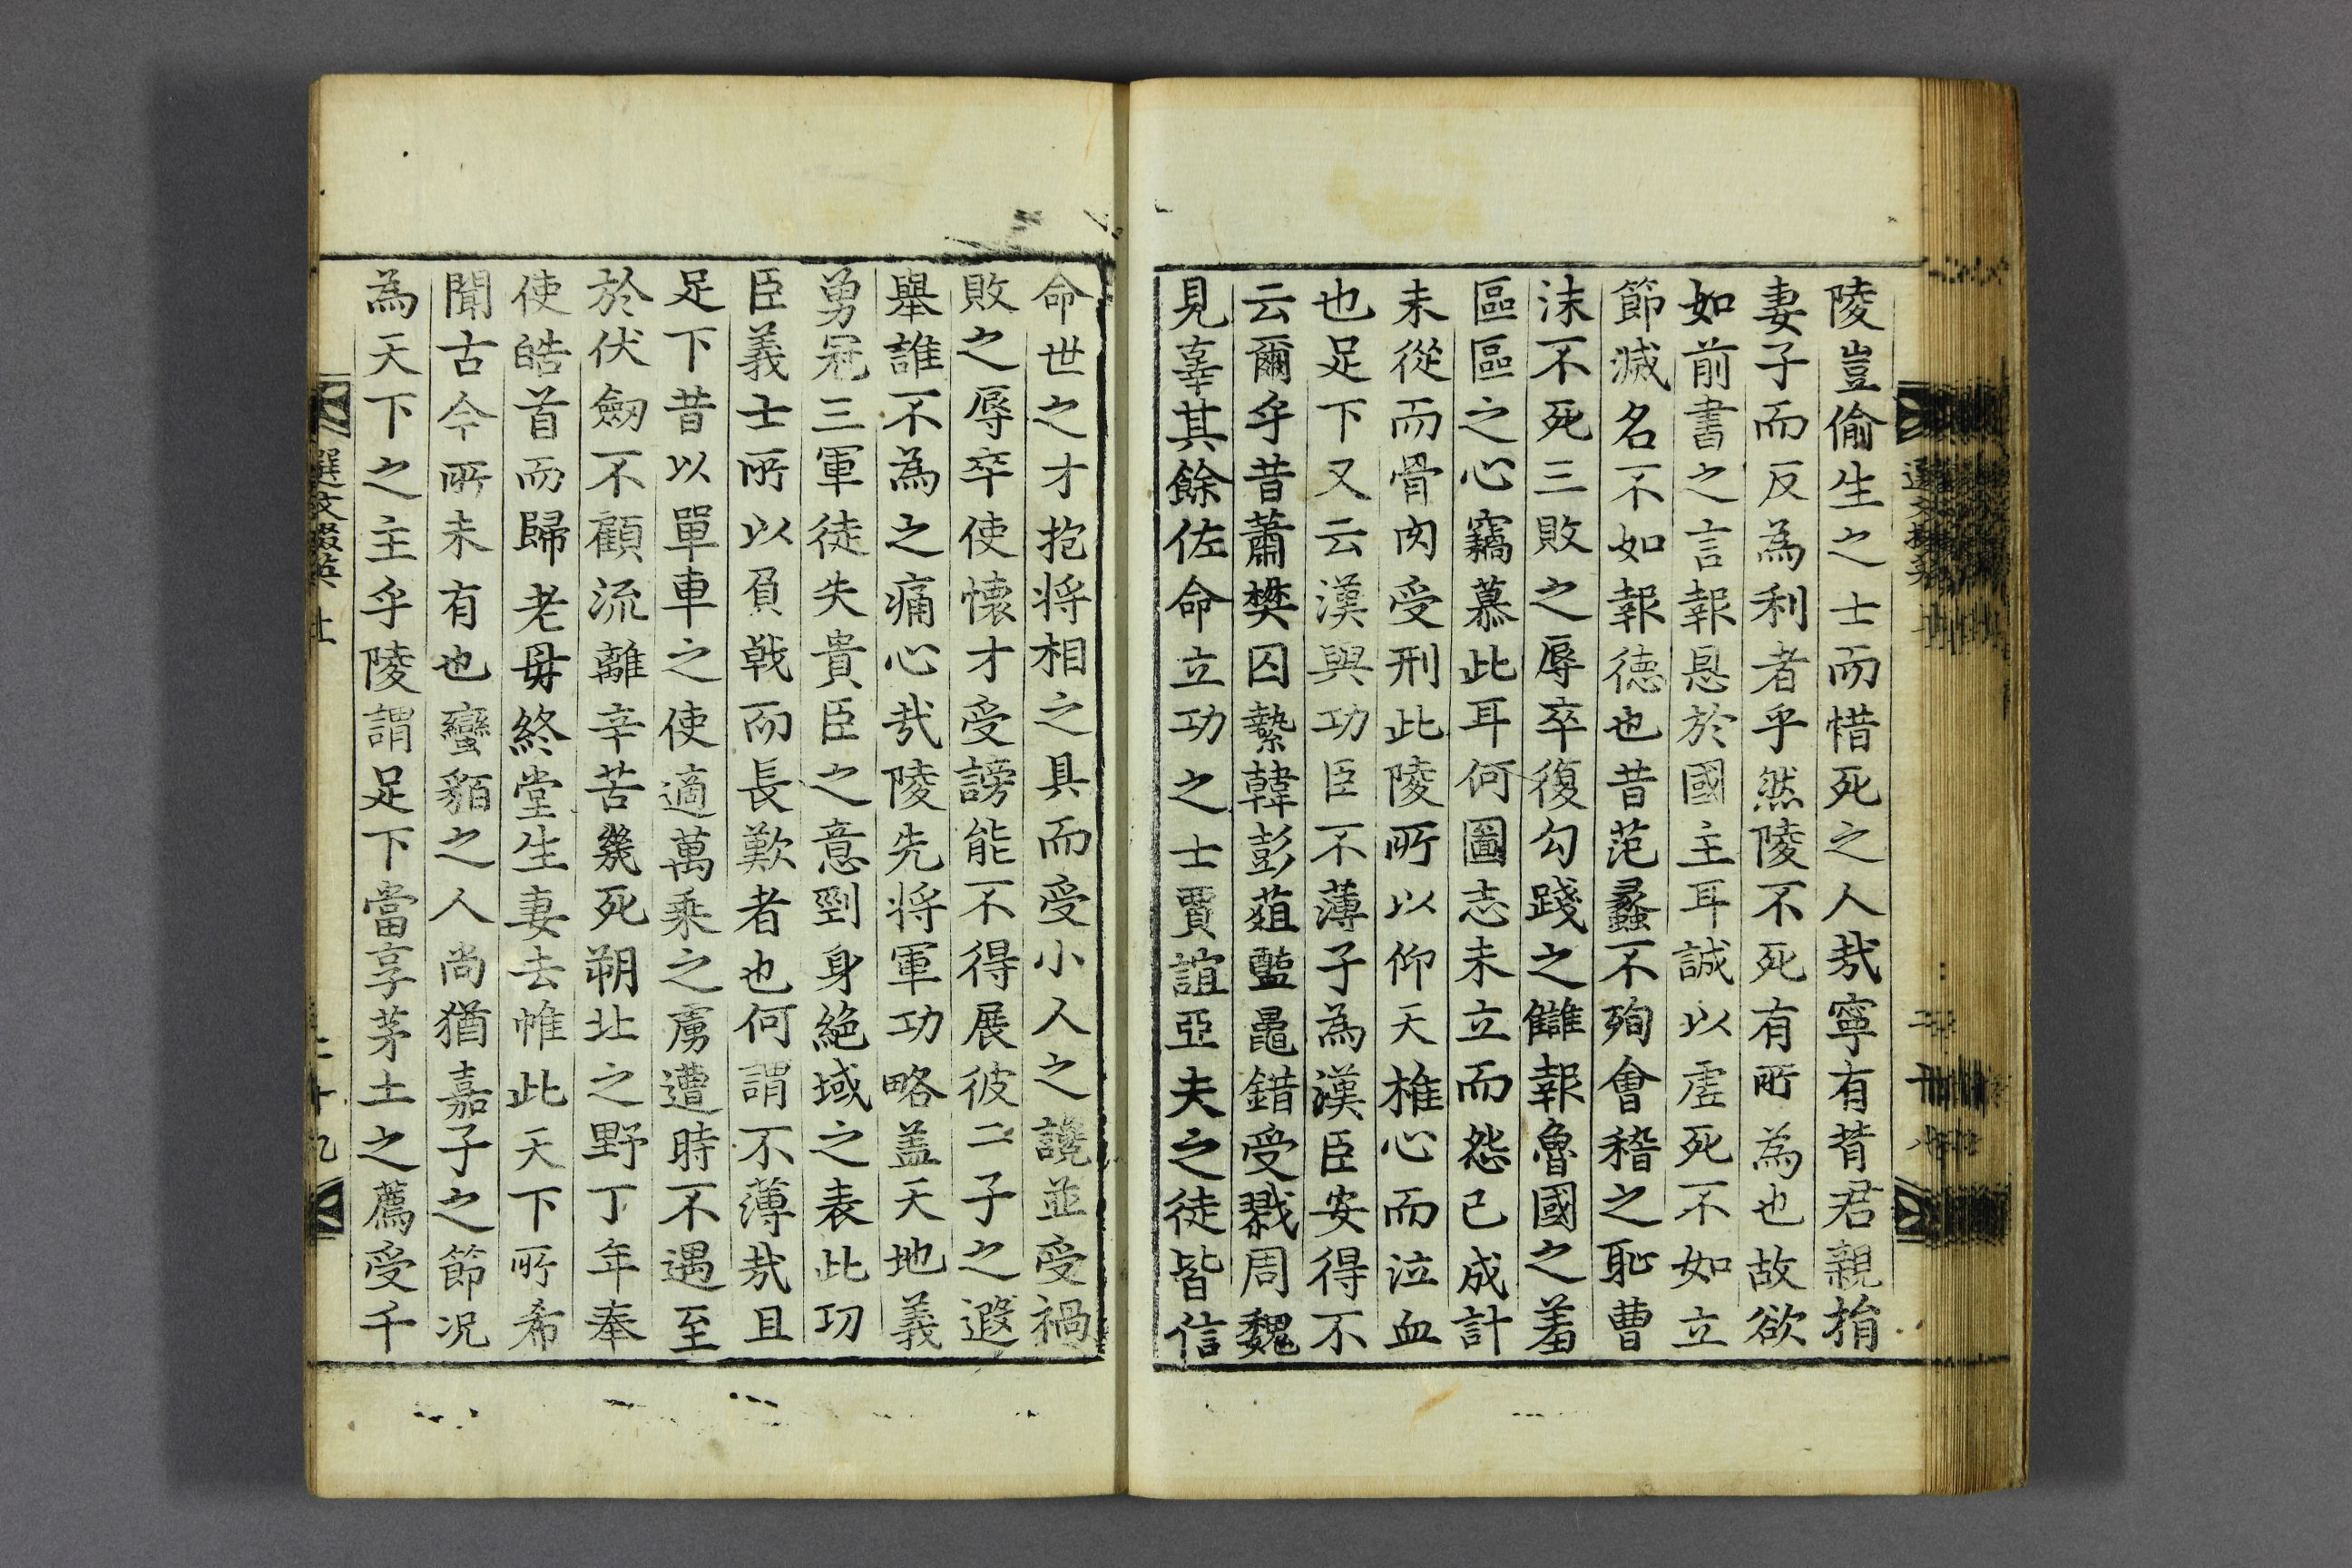 陵豈偷生之士而惜死之人哉寧有背君親捐
妻子而反為利者乎然陵不死有所為也故欲
如前書之言報恩於國主耳誠以虛死不如立
節滅名不如報德也昔范蠡不殉會稽之恥曹
沫不死三敗之辱卒復勾踐之讎報魯國之羞
區區之心竊慕此耳何圖志未立而怨已成計
未從而骨肉受刑此陵所以仰天椎心而泣血
也足下又云漢與功臣不薄子為漢臣安得不
云爾乎昔蕭樊囚縶韓彭葅醢鼂錯受戮周魏
見辜其餘佐命立功之士賈誼亞夫之徒皆信
命世之才抱将相之具而受小人之讒並受禍
敗之辱卒使懷才受謗能不得展彼二子之遐
舉誰不為之痛心哉陵先将軍功略盖天地義
勇冠三軍徒失貴臣之意剄身絕域之表此功
臣義士所以負戟而長歎者也何謂不薄哉且
足下昔以單車之使適萬乘之虜遭時不遇至
於伏劒不顧流離辛苦幾死朔北之野丁年奉
使皓首而歸老母終堂生妻去帷此天下所希
聞古今所未有也蠻貊之人尚猶嘉子之節况
為天下之主乎陵謂足下當享茅土之薦受千
選文掇英 上
二十九